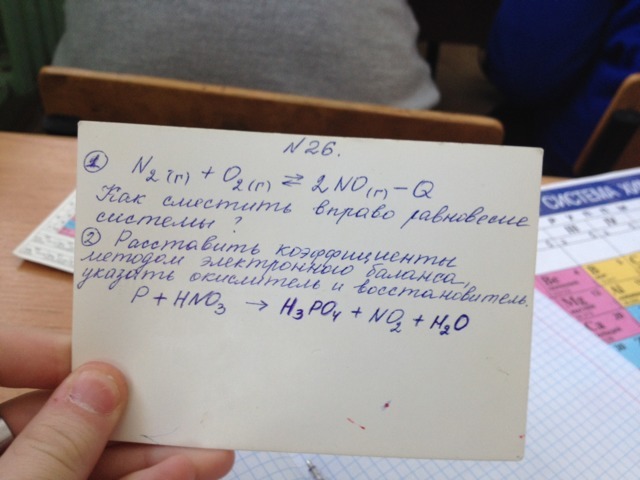 N26.
① N₂(г) + O₂(г) ⇄ 2NO(г) – Q
Как сместить вправо равновесие
системы?
② Расставить коэффициенты
методом электронного баланса,
указать окислитель и восстановитель.
P + HNO₃ → H₃PO₄ + NO₂ + H₂O
СИСТЕМА ХИ
Be
Mg
Ca
B